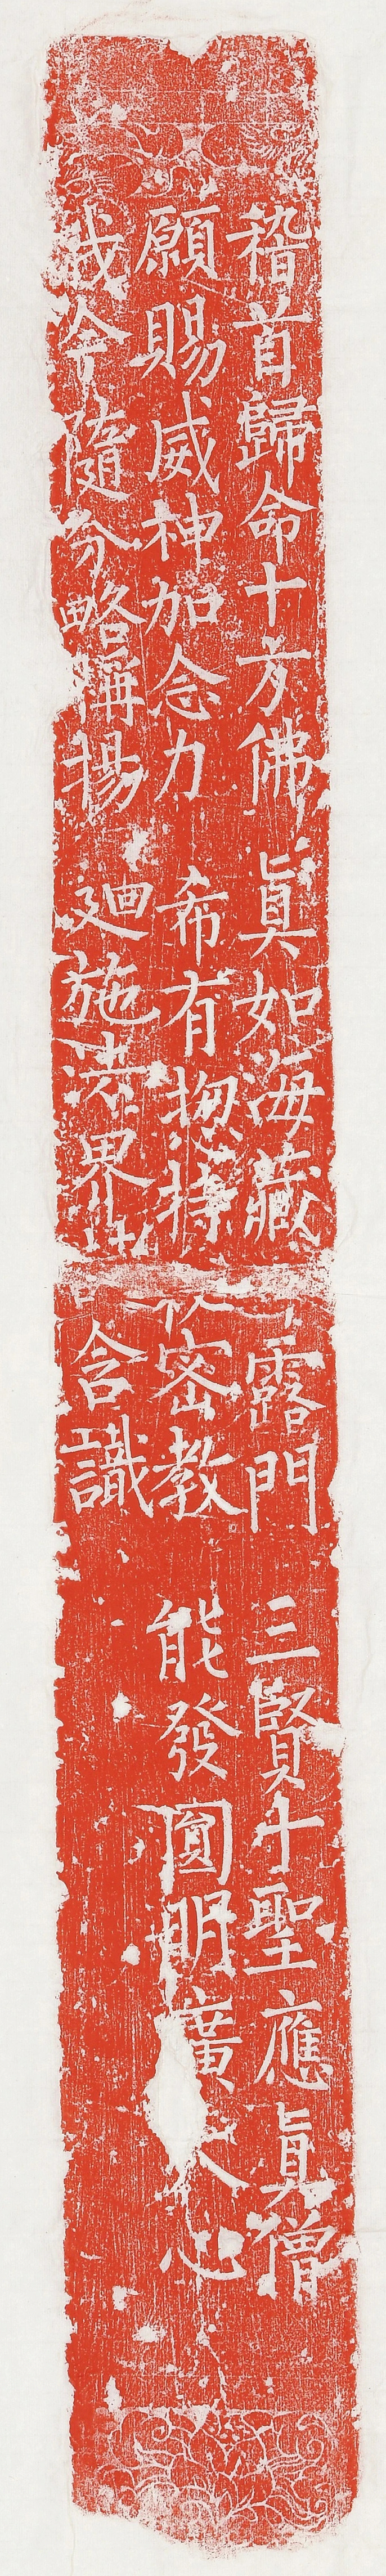 稽首歸命十方佛 眞如海藏露門 三賢十聖應眞僧
願賜威神加念力 希有揔持密教 能發圓明廣心
我今隨分略稱揚 廻施法界含識